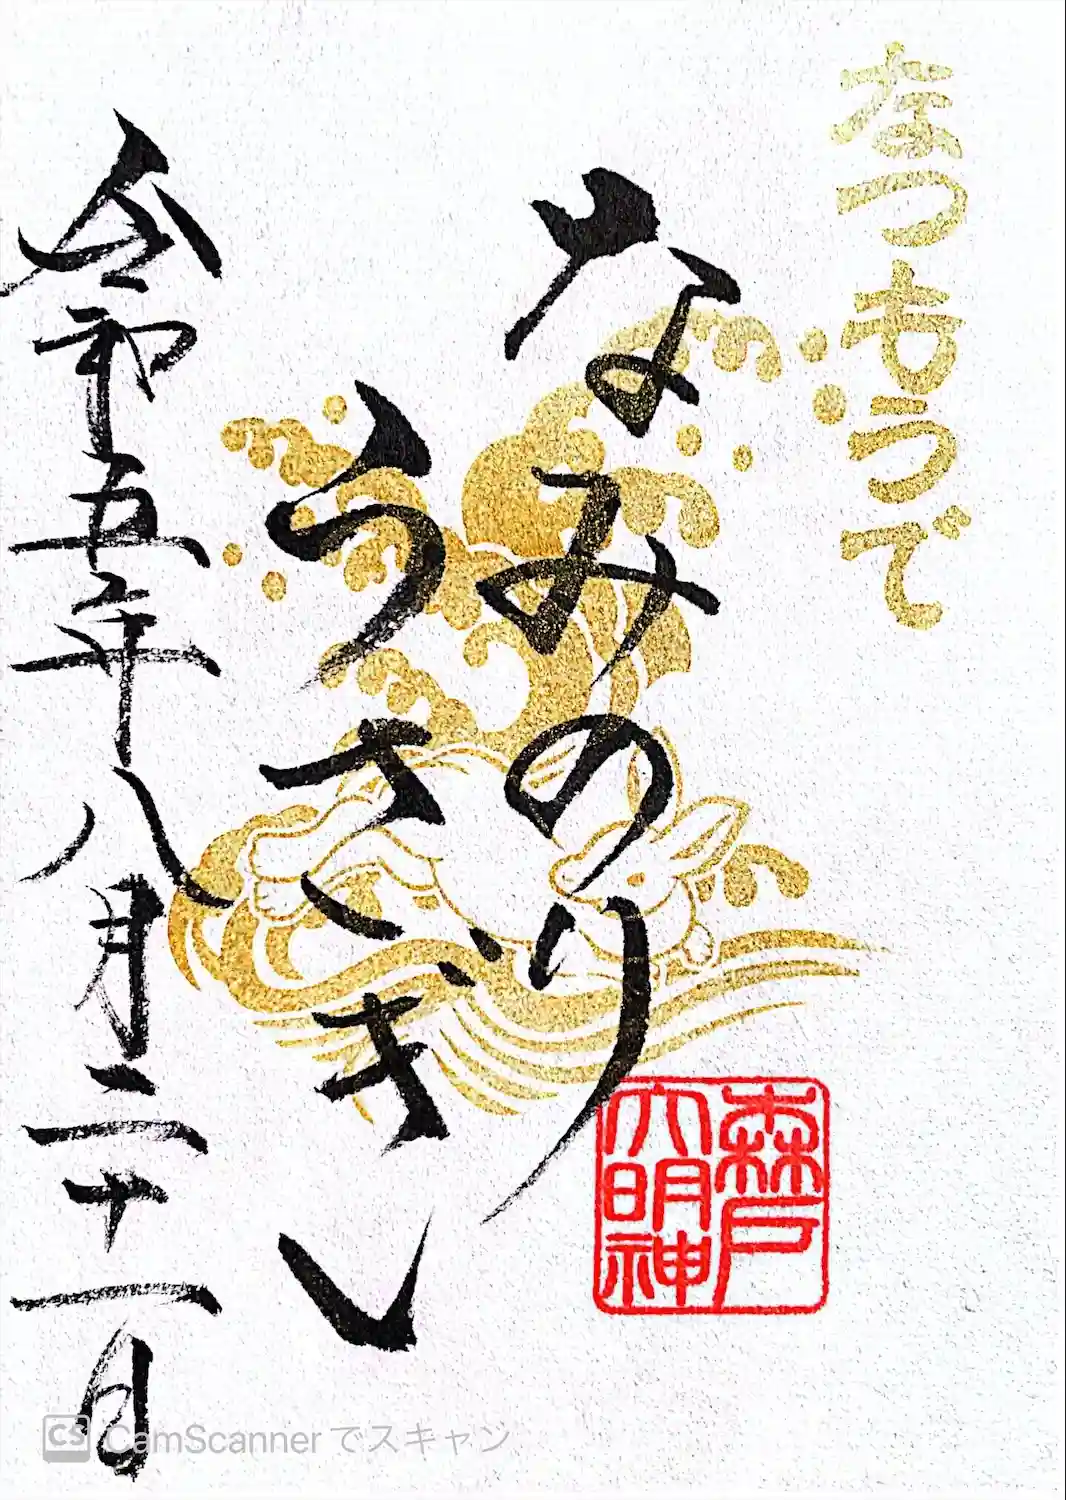 なつもうで
なみのり
うさぎ
森戸
大明神
令和五年八月二十一日
CS CamScanner でスキャン